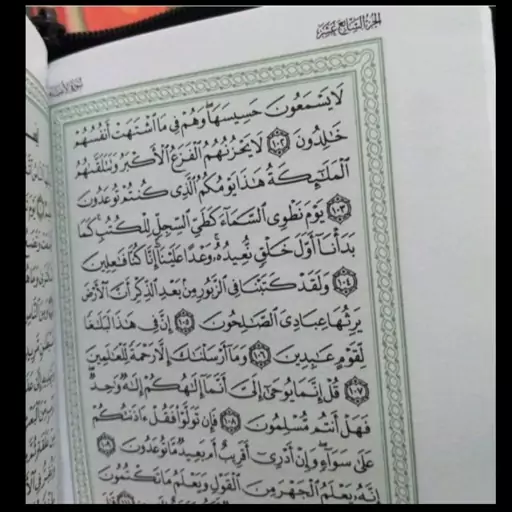 الجزء السابع عشر
سورة الأنبياء
لَا يَسْمَعُونَ حَسِيسَهَا وَهُمْ فِى مَا ٱشْتَهَتْ أَنفُسُهُمْ
خَـٰلِدُونَ ١٠٢ لَا يَحْزُنُهُمُ ٱلْفَزَعُ ٱلْأَكْبَرُ وَتَتَلَقَّىٰهُمُ
ٱلْمَلَـٰٓئِكَةُ هَـٰذَا يَوْمُكُمُ ٱلَّذِى كُنتُمْ تُوعَدُونَ
١٠٣ يَوْمَ نَطْوِى ٱلسَّمَآءَ كَطَىِّ ٱلسِّجِلِّ لِلْكُتُبِ ۚ كَمَا
بَدَأْنَآ أَوَّلَ خَلْقٍ نُّعِيدُهُۥ ۚ وَعْدًا عَلَيْنَآ ۚ إِنَّا كُنَّا فَـٰعِلِينَ
١٠٤ وَلَقَدْ كَتَبْنَا فِى ٱلزَّبُورِ مِنۢ بَعْدِ ٱلذِّكْرِ أَنَّ ٱلْأَرْضَ
يَرِثُهَا عِبَادِىَ ٱلصَّـٰلِحُونَ ١٠٥ إِنَّ فِى هَـٰذَا لَبَلَـٰغًا
لِّقَوْمٍ عَـٰبِدِينَ ١٠٦ وَمَآ أَرْسَلْنَـٰكَ إِلَّا رَحْمَةً لِّلْعَـٰلَمِينَ
١٠٧ قُلْ إِنَّمَا يُوحَىٰٓ إِلَىَّ أَنَّمَآ إِلَـٰهُكُمْ إِلَـٰهٌ وَٰحِدٌ ۖ
فَهَلْ أَنتُم مُّسْلِمُونَ ١٠٨ فَإِن تَوَلَّوْا۟ فَقُلْ ءَاذَنتُكُمْ
عَلَىٰ سَوَآءٍ ۖ وَإِنْ أَدْرِىٓ أَقَرِيبٌ أَم بَعِيدٌ مَّا تُوعَدُونَ ١٠٩
إِنَّهُۥ يَعْلَمُ ٱلْجَهْرَ مِنَ ٱلْقَوْلِ وَيَعْلَمُ مَا تَكْتُمُونَ